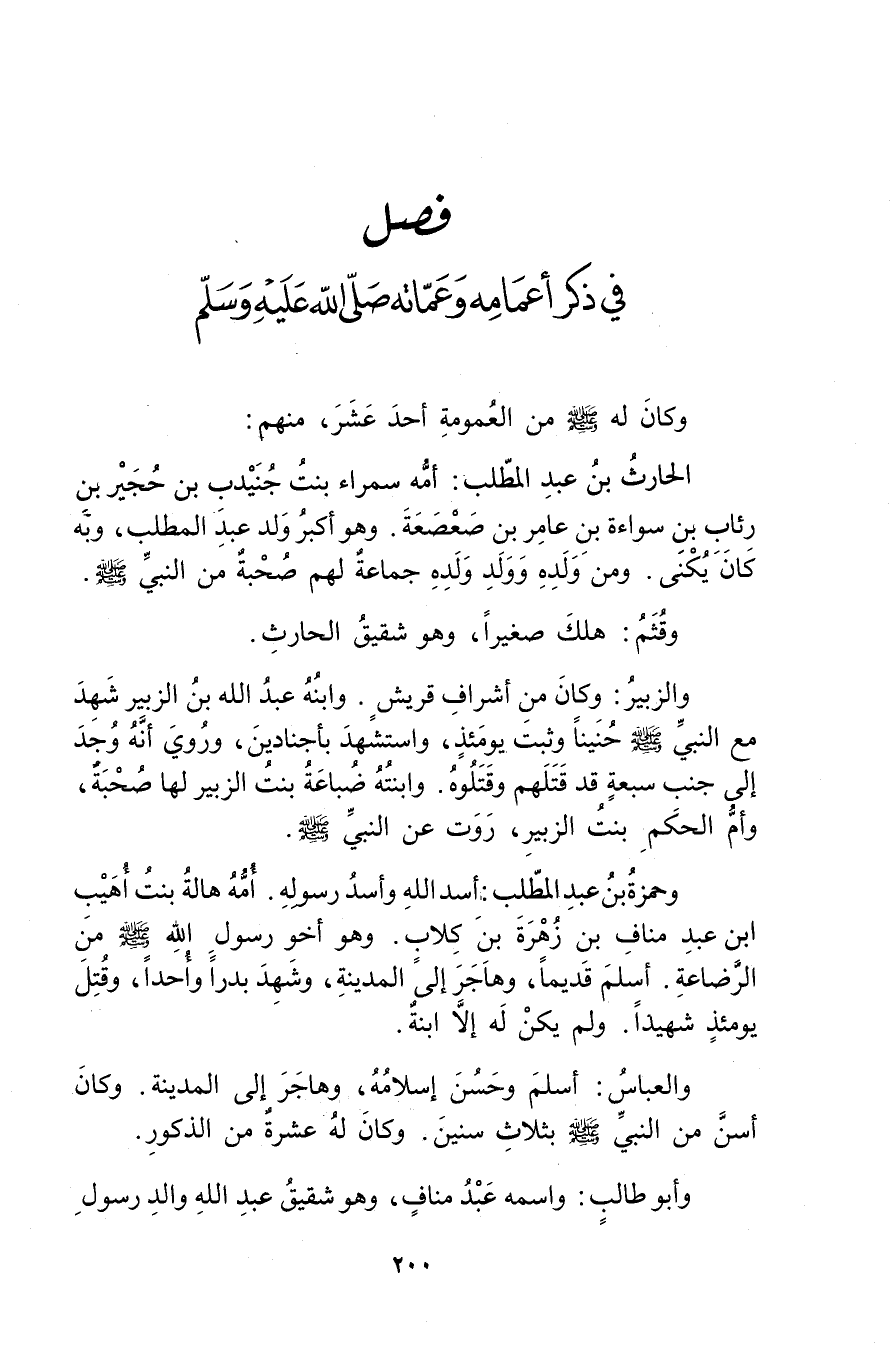 فصل
في ذكر أعمَامِه وَعَمّاته صَلّى اللّه عَلَيْهِ وَسَلّم
وكانَ له ﷺ من العُمومةِ أحدَ عَشَرَ، منهم:
الحارثُ بنُ عبدِ المطّلب: أمُّه سمراء بنتُ جُنَيْدب بن حُجَيْر بن
رئاب بن سواءة بن عامر بن صَعْصَعَةَ. وهو أكبرُ وَلد عبدِ المطلب، وبَّه
كَانَ يُكْنَى. ومن وَلَدِهِ وَوَلَدِ وَلَدِهِ جماعةٌ لهم صُحْبةٌ من النبيِّ ﷺ.
وقُثَمُ: هلكَ صغيراً، وهو شقيقُ الحارثِ.
والزبيرُ: وكانَ من أشرافِ قريشٍ. وابنُهُ عبدُ الله بنُ الزبير شَهِدَ
مع النبيِّ ﷺ حُنَيناً وثبتَ يومَئذٍ، واستشهدَ بأجنادينَ، ورُويَ أنَّهُ وُجِدَ
إلى جنب سبعةٍ قد قَتَلَهم وقَتَلُوهُ. وابنتُهُ ضُباعَةُ بنتُ الزبير لها صُحْبَةٌ،
وأمُّ الحكَمِ بنتُ الزبيرِ، رَوَت عن النبيِّ ﷺ.
وحمزةُ بنُ عبدِ المطّلب: أسد اللهِ وأسدُ رسولِهِ. أُمُّهُ هالةُ بنتُ أُهَيْب
ابن عبدِ منافِ بن زُهْرَةَ بنَ كِلابٍ. وهو أخو رسولِ اللهِ ﷺ منَ
الرَّضاعةِ. أسلمَ قَديماً، وهاَجَرَ إلى المدينةِ، وشَهِدَ بدراً وأُحداً، وقُتِلَ
يومئذٍ شهيداً. ولم يكنْ لَه إلَّا ابنةٌ.
والعباسُ: أسلمَ وحَسُنَ إسلامُهُ، وهاجَرَ إلى المدينة. وكانَ
أسنَّ من النبيِّ ﷺ بثلاثِ سنينَ. وكانَ لهُ عشرةٌ من الذكورِ.
وأبو طالبٍ: واسمه عَبْدُ منافٍ، وهو شقيقُ عبدِ اللهِ والدِ رسولِ
٢٠٠